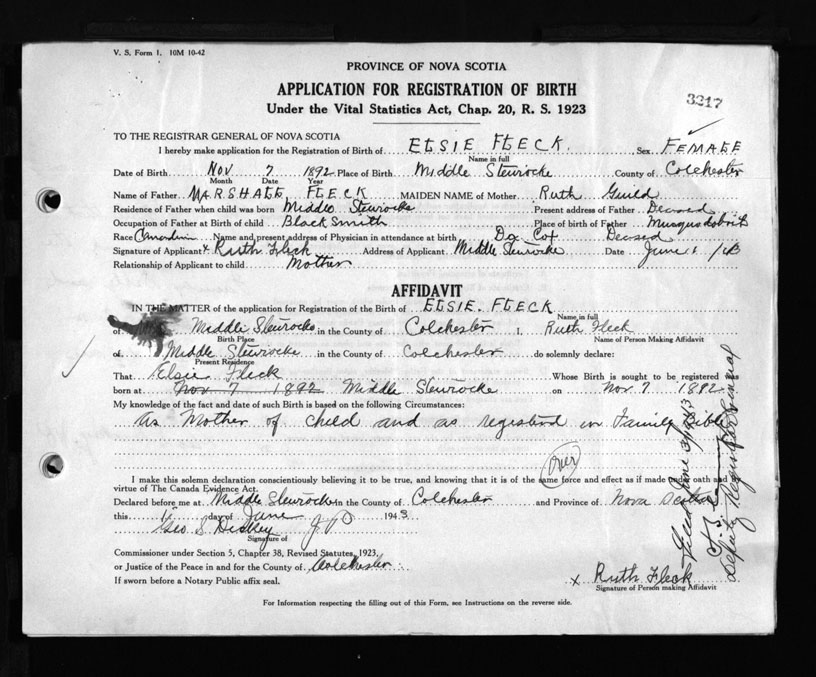 V. S. Form 1. 10M 10-42
PROVINCE OF NOVA SCOTIA
APPLICATION FOR REGISTRATION OF BIRTH
Under the Vital Statistics Act, Chap. 20, R. S. 1923
3217
TO THE REGISTRAR GENERAL OF NOVA SCOTIA
I hereby make application for the Registration of Birth of ELSIE FLECK. Sex FEMALE
Name in full
Date of Birth Nov 7 1892 Place of Birth Middle Stewiacke County of Colchester
Month Date Year
Name of Father MARSHALL FLECK MAIDEN NAME of Mother Ruth Guild
Residence of Father when child was born Middle Present address of Father
Occupation of Father at Birth of child Black Smith Place of birth of Father
Race Name and present address of Physician in attendance at birth Cox
Signature of Applicant x Ruth Fleck Address of Applicant Middle Date June
Relationship of Applicant to child Mother
AFFIDAVIT
IN THE MATTER of the application for Registration of the Birth of ELSIE. FLECK
Name in full
of Middle in the County of Colchester I, Ruth Fleck
Birth Place Name of Person Making Affidavit
of Middle in the County of Colchester do solemnly declare:
Present Residence
That Elsie Fleck Whose Birth is sought to be registered was
born at Nov 7 1892 Middle on Nov 7 1892
My knowledge of the fact and date of such Birth is based on the following Circumstances:
As Mother of child and as in Family Bible
over
I make this solemn declaration conscientiously believing it to be true, and knowing that it is of the same force and effect as if made under oath and by
virtue of The Canada Evidence Act.
Declared before me at Middle in the County of Colchester and Province of Nova Scotia
this day of June 1943
Geo S J P
Signature of
Commissioner under Section 5, Chapter 38, Revised Statutes, 1923,
or Justice of the Peace in and for the County of Colchester
If sworn before a Notary Public affix seal.
x Ruth Fleck
Signature of Person making Affidavit
For Information respecting the filling out of this Form, see Instructions on the reverse side.